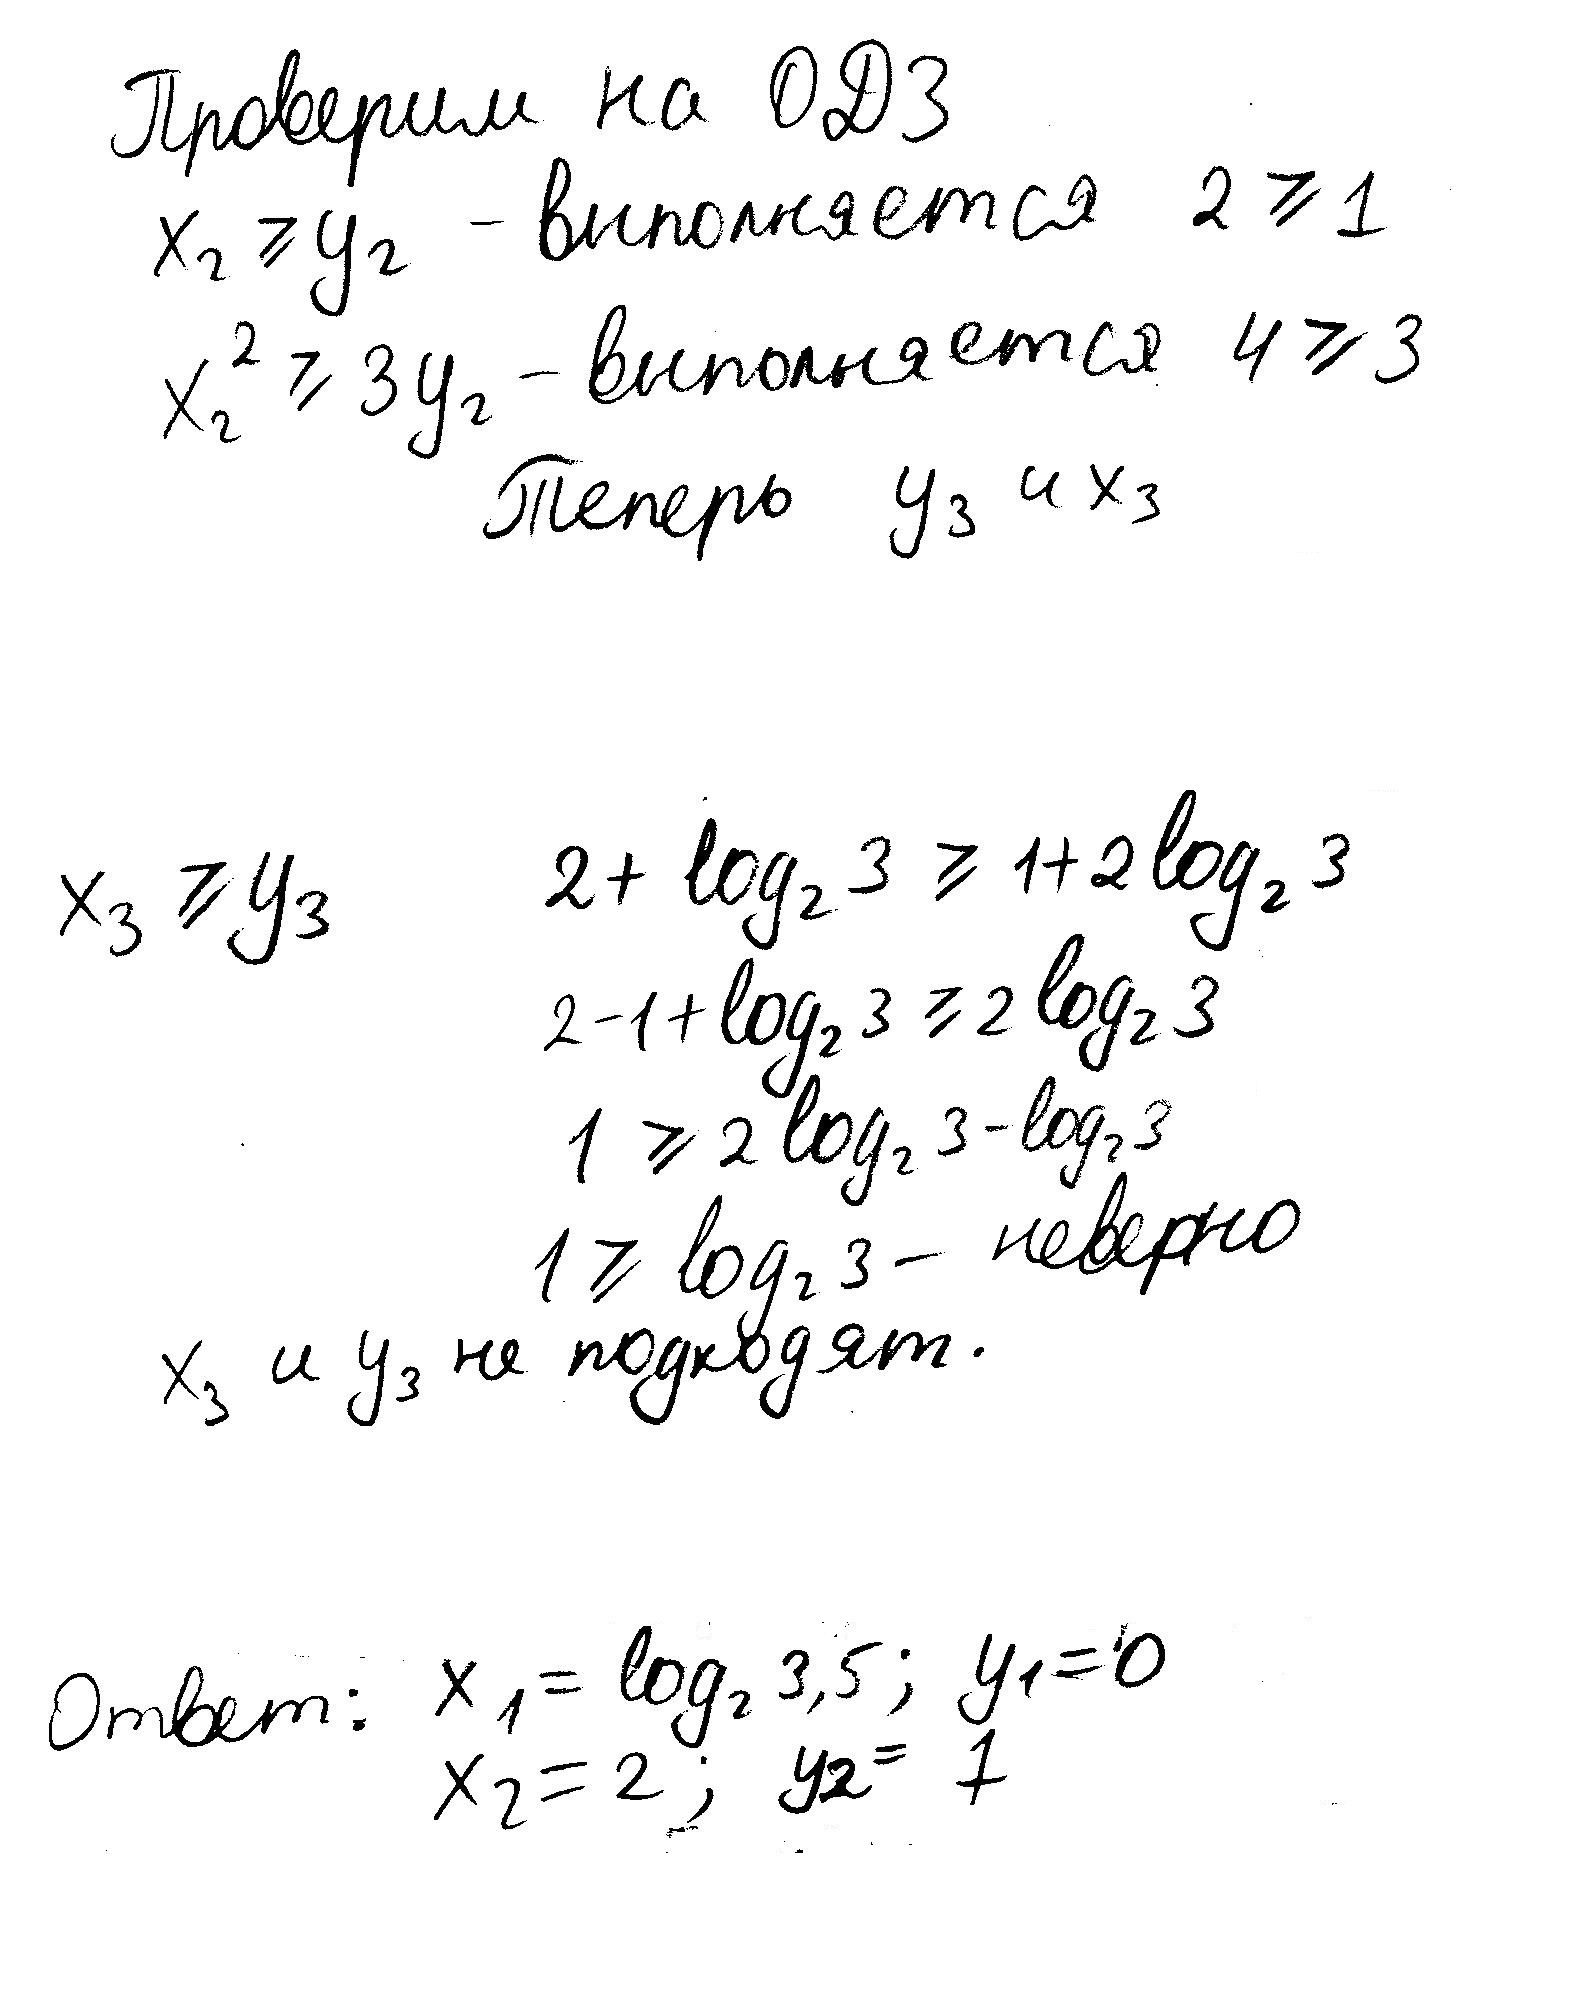 Проверим на ОДЗ
x₂ ⩾ y₂ - выполняется 2 ⩾ 1
x₂² ⩾ 3y₂ - выполняется 4 ⩾ 3
Теперь y₃ и x₃
x₃ ⩾ y₃ 2 + log₂ 3 ⩾ 1 + 2 log₂ 3
2 - 1 + log₂ 3 ⩾ 2 log₂ 3
1 ⩾ 2 log₂ 3 - log₂ 3
1 ⩾ log₂ 3 - неверно
x₃ и y₃ не подходят.
Ответ: x₁ = log₂ 3,5; y₁ = 0
x₂ = 2; y₂ = 1